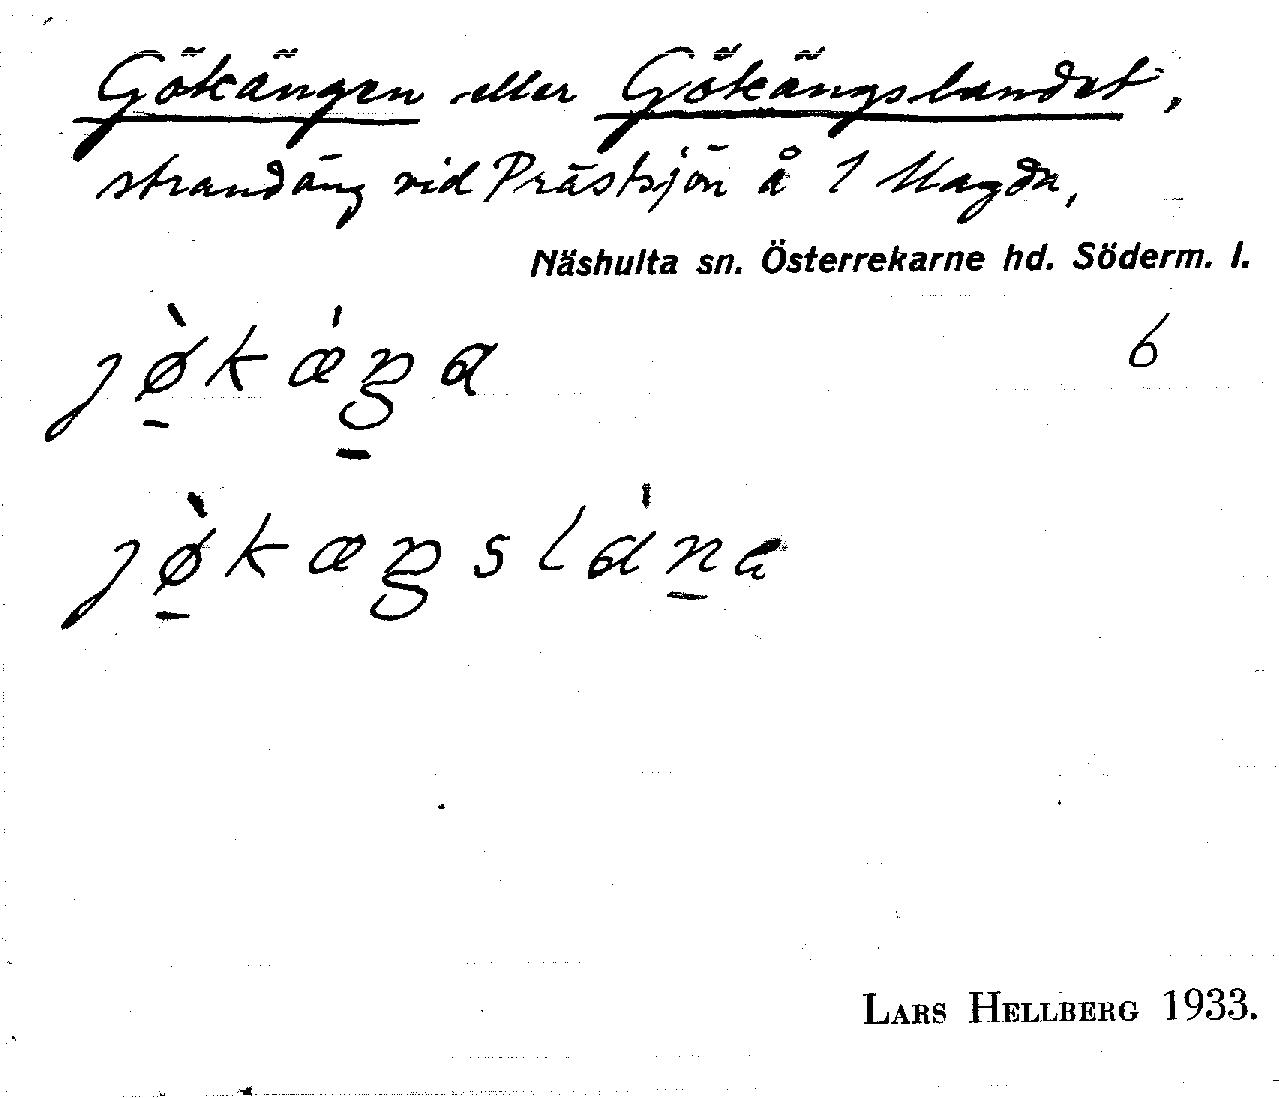 Gökängen eller Gökängslandet,
strandäng vid Prästsjön å 1 Magda,
Näshulta sn. Österrekarne hd. Söderm. l.
6
jø̀kæ̀ŋa
jø̀kæŋslána
Lars Hellberg 1933.